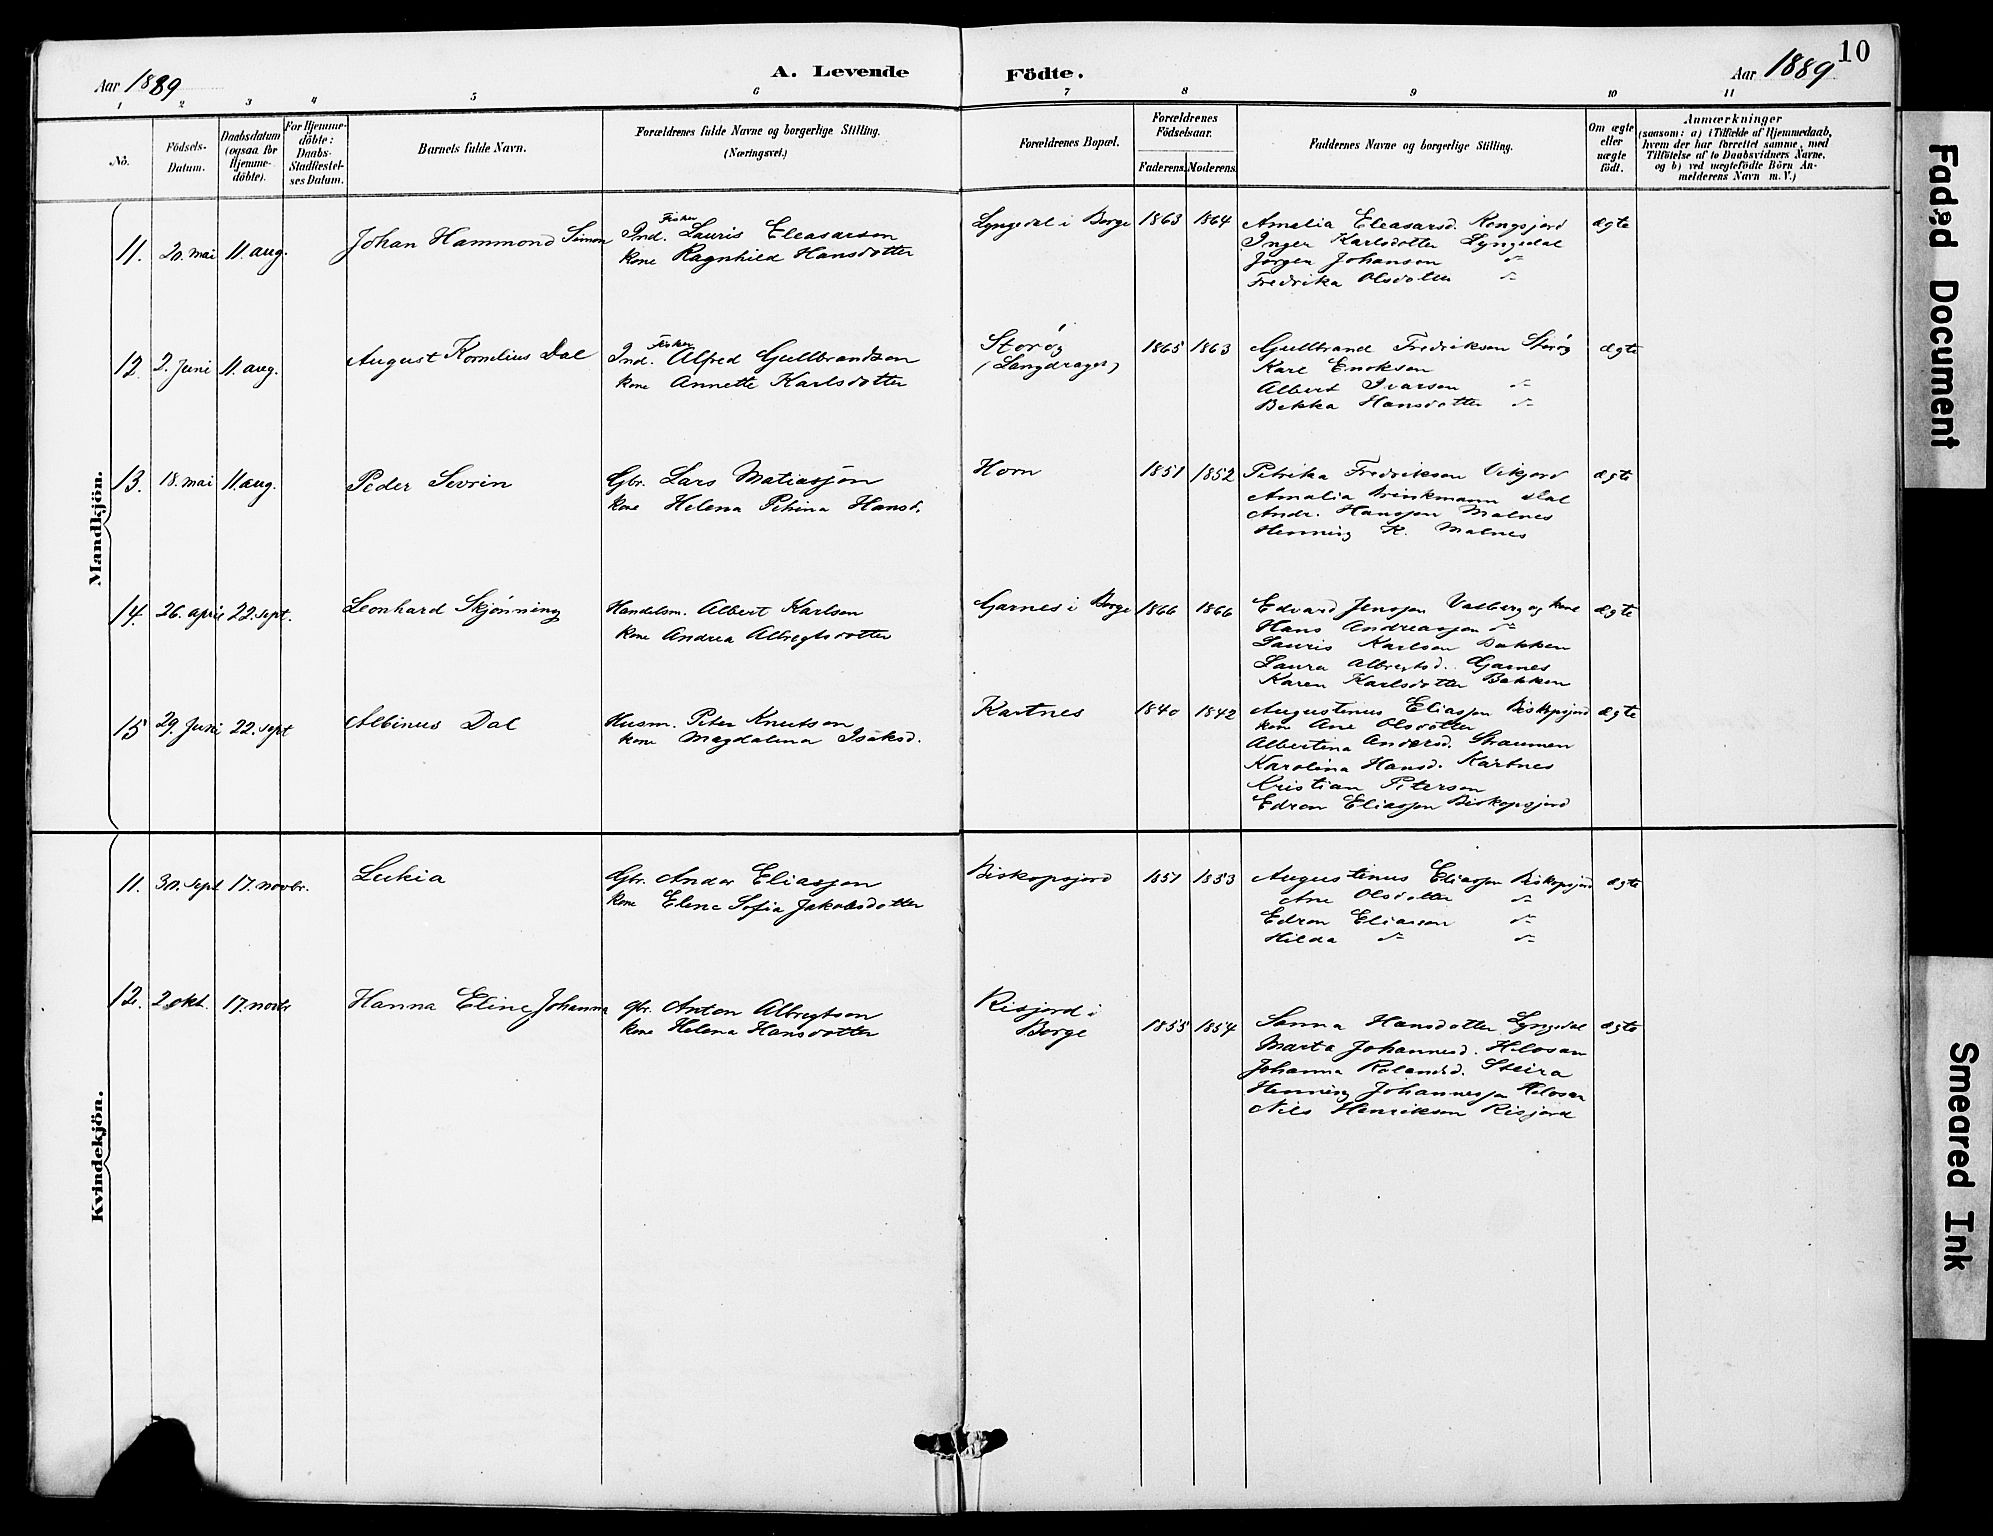 10
Aar 1889
A. Levende Födte.
Aar 1889
1 2 3 4 5 6 7 8 9 10 11
No.
Födsels-Datum.
Daabsdatum (ogsaa for Hjemme-döbte).
For Hjemme-döbte: Daabs-Stadfæstel-ses Datum.
Barnets fulde Navn.
Forældrenes fulde Navne og borgerlige Stilling.
(Næringsvei.)
Forældrenes Bopæl.
Forældrenes Födselsaar.
Faderens. Moderens.
Faddernes Navne og borgerlige Stilling.
Om ægte eller uægte födt.
Anmærkninger
(saasom: a) i Tilfælde af Hjemmedaab,
hvem der har forrettet samme, med
Tilföielse af to Daabsvidners Navne,
og b) ved uægtefödte Börn An-
melderens Navn m. V.)
Mandkjön.
11. 20. mai 11. aug. Johan Hammond Simon
Fisker
Ind. Lauris Eleasarsen
kone Ragnhild Hansdotter
Lyngedal i Borge 1863 1864
Amalia Eleasarsd. Kongsjord ægte
Inger Karlsdotter Lyngedal
Jørgen Johansen
Fredrika Olsdotter
12. 2. Juni 11. aug. August Kornelius Dal
Fisker
Ind. Alfred Gullbrandsen
kone Annette Karlsdotter
Storøg
(Langdrager)
1865 1863
Gullbrand Fredriksen Storøg ægte
Karl Enoksen
Albert Ivarsen
Bekka Hansdotter
13. 18. mai 11. aug. Peder Sevrin
Gbr. Lars Matiasjøn
kone Helena Petrina Hansd.
Horn 1851 1852
Petrika Fredriksen Vikjord ægte
Amalia Brinkmann Dal
Andr. Hansjøn Malnes
Henning K. Malnes
14. 26. april 22. sept. Leonhard Skjønning
Handelsm. Albert Karlsen
kone Andrea Albregtsdotter
Garnes i Borge 1866 1866
Edvard Jensjøn Valberg og kone ægte
Hans Andreasjøn
Lauris Karlsen Bakken
Laura Albregtsd. Garnes
Karen Karlsdotter Bakken
15 29. Juni 22. sept Albinus Dal
Husm. Peter Knutsen
kone Magdalena Isaksd.
Kartnes 1840 1842
Augustinus Eliasjøn Biskopsjord ægte
kone Ane Olsdotter
Albertina Andersd. Straumen
Karolina Hansd. Kartnes
Kristian Petersen
Edron Eliasjøn Biskopsjord
Kvindekjön.
11. 30. sept 17. novbr. Lukia
Gbr. Andor Eliasjøn
kone Elene Sofia Jakobsdotter
Biskopsjord 1851 1853
Augustinus Eliasjøn Biskopsjord ægte
Ane Olsdotter
Edron Eliasen
Hilda
12. 2. okt. 17. novbr Hanna Eline Johanna
Gbr. Anton Albregtsen
kone Helena Hansdotter
Risjord i
Borge
1855 1854
Sanna Hansdotter Lyngedal ægte
Marta Johannesd. Helosan
Johanna Rolandsd. Steira
Henning Johannesjøn Helosan
Nils Henriksen Risjord
Faded Document
Smeared Ink